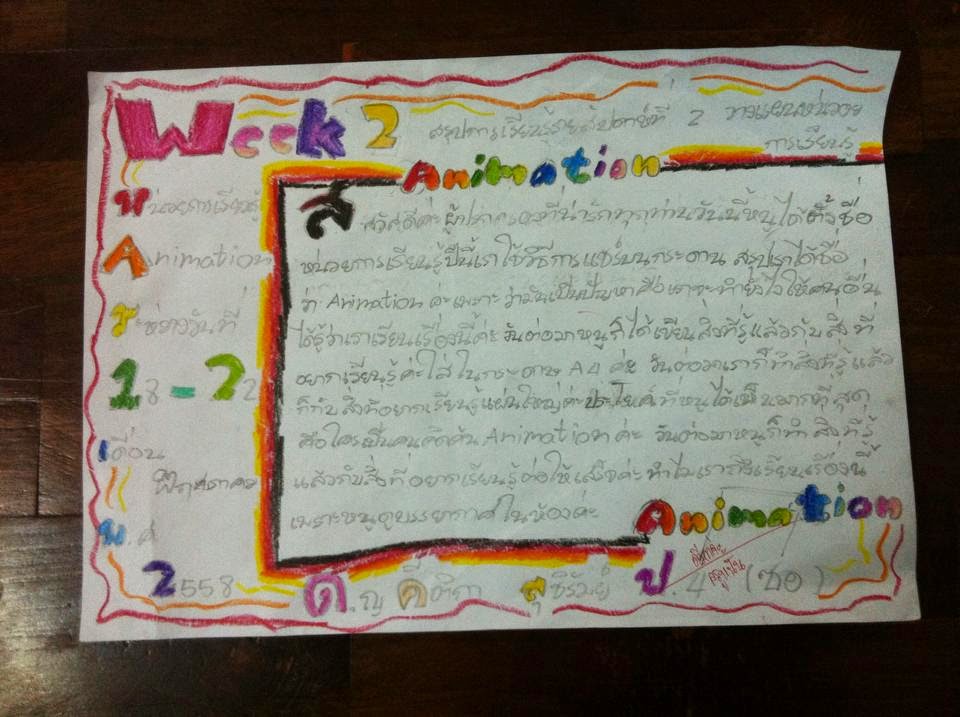 Week 2
สรุปการเรียนรู้รายสัปดาห์ที่ 2
การเรียนรู้
Animation
หน่วยการเรียนรู้
Animation
ระหว่างวันที่
18-22
เดือน
พฤษภาคม
พ.ศ
2558
สวัสดีค่ะ ผู้ปกครองที่น่ารักทุกท่านวันนี้หนูได้ตั้งชื่อ
หน่วยการเรียนรู้ปีนี้เราใช้วิธีการแชร์บนกระดาน สรุปเราได้ชื่อ
ว่า Animation ค่ะเพราะ ว่ามันเป็นปัญหาคือเราจะทำยังไงให้คนอื่น
ได้รู้ว่าเราเรียนเรื่องนี้ค่ะ วันต่อมาหนูก็ได้เขียนสิ่งที่รู้แล้วกับสิ่งที่
อยากเรียนรู้ค่ะใส่ในกระดาษ A4 ค่ะ วันต่อมาเราก็ทำสิ่งที่รู้แล้ว
ก็กับสิ่งที่อยากเรียนรู้แผ่นใหญ่ค่ะประโยคที่หนูได้เห็นมากที่สุด
คือใครเป็นคนคิดค้น Animation ค่ะ วันต่อมาหนูก็ทำ สิ่งที่รู้
แล้วกับสิ่งที่อยากเรียนรู้ต่อให้เสร็จค่ะ ทำไมเราถึงเรียนเรื่องนี้
เพราะหนูดูบรรยากาศในห้องค่ะ
Animation
ด.ญ คีตกา สุชีรัมย์ ป.4 (ชอ)